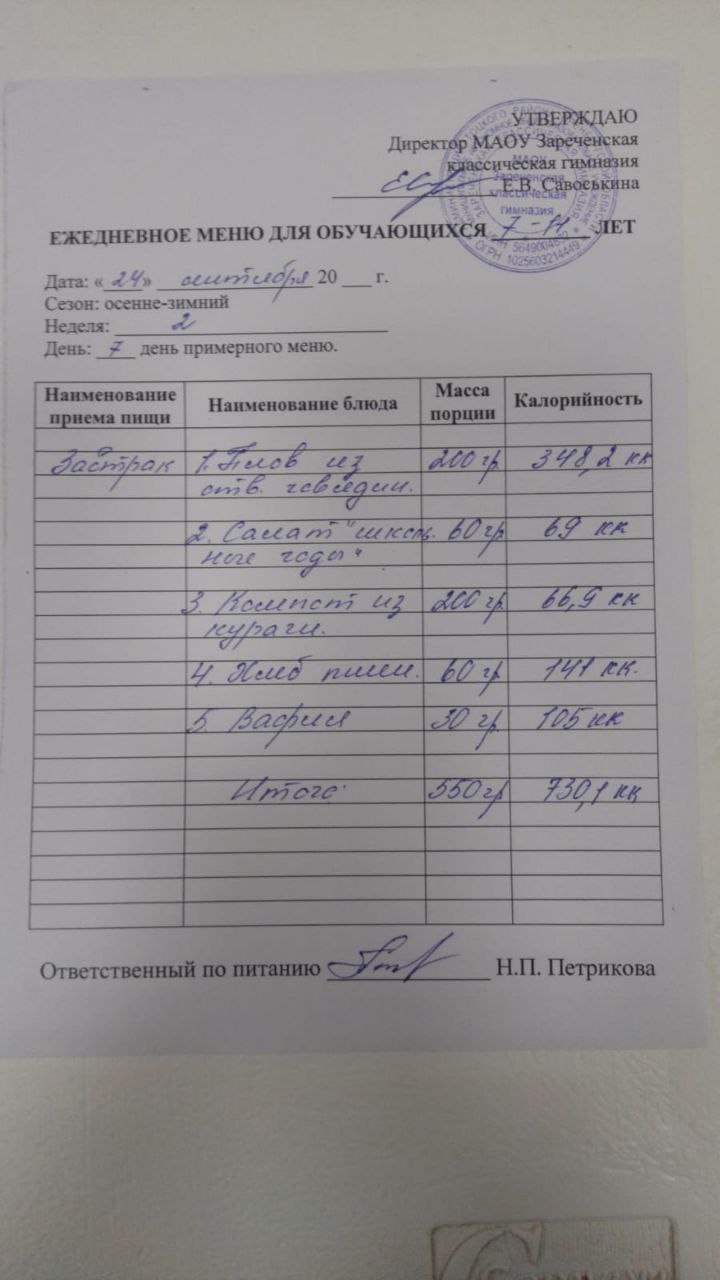 УТВЕРЖДАЮ
Директор МАОУ Зареченская
классическая гимназия
Е.В. Савоськина
МАОУ
Зареченская
классическая
гимназия
ОГРН 1025603214449
ЕЖЕДНЕВНОЕ МЕНЮ ДЛЯ ОБУЧАЮЩИХСЯ 7-11 ЛЕТ
Дата: «24» сентября 20 ___ г.
Сезон: осенне-зимний
Неделя: 2
День: 7 день примерного меню.
Наименование приема пищи Наименование блюда Масса порции Калорийность
Завтрак 1. Плов из 200 гр 348,2 кк
отв. говядин.
2. Салат "школь- 60 гр 69 кк
ные годы"
3. Компот из 200 гр 66,9 кк
кураги.
4. Хлеб пшен. 60 гр 141 кк.
5. Вафля 30 гр 105 кк
Итого: 550 гр 730,1 кк
Ответственный по питанию Н.П. Петрикова